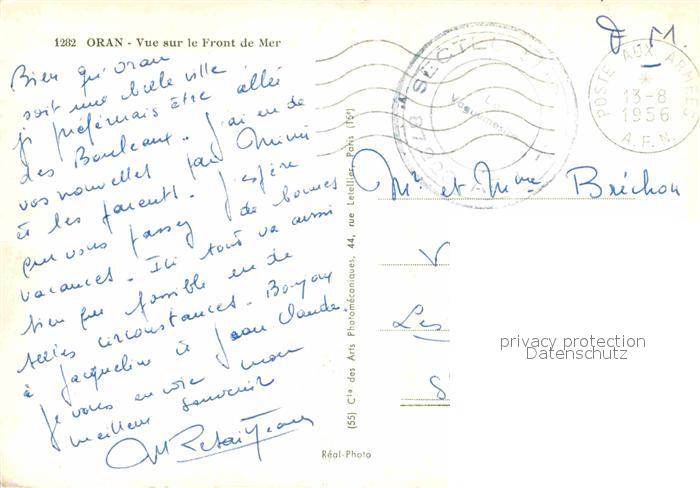 1282 ORAN - Vue sur le Front de Mer
Bien qu'Oran
soit une belle ville
je préférais être allée
des Bouleaux. J'ai eu de
vos nouvelles par Mimi
et les parents. J'espère
que vous passez de bonnes
vacances. Ici tout va aussi
bien que possible en de
telles circonstances. Bonjour
à Jacqueline et Jean Claude.
Je vous envoie mon
meilleur souvenir
(55) Cie des Arts Photomécaniques, 44, rue Letellier, Paris (15e)
Réal-Photo
SECTEUR
F. M.
POSTE AUX ARMÉES
13-8
1956
A.F.N.
Mr et Mme Bréchon
V
Les
S
privacy protection
Datenschutz